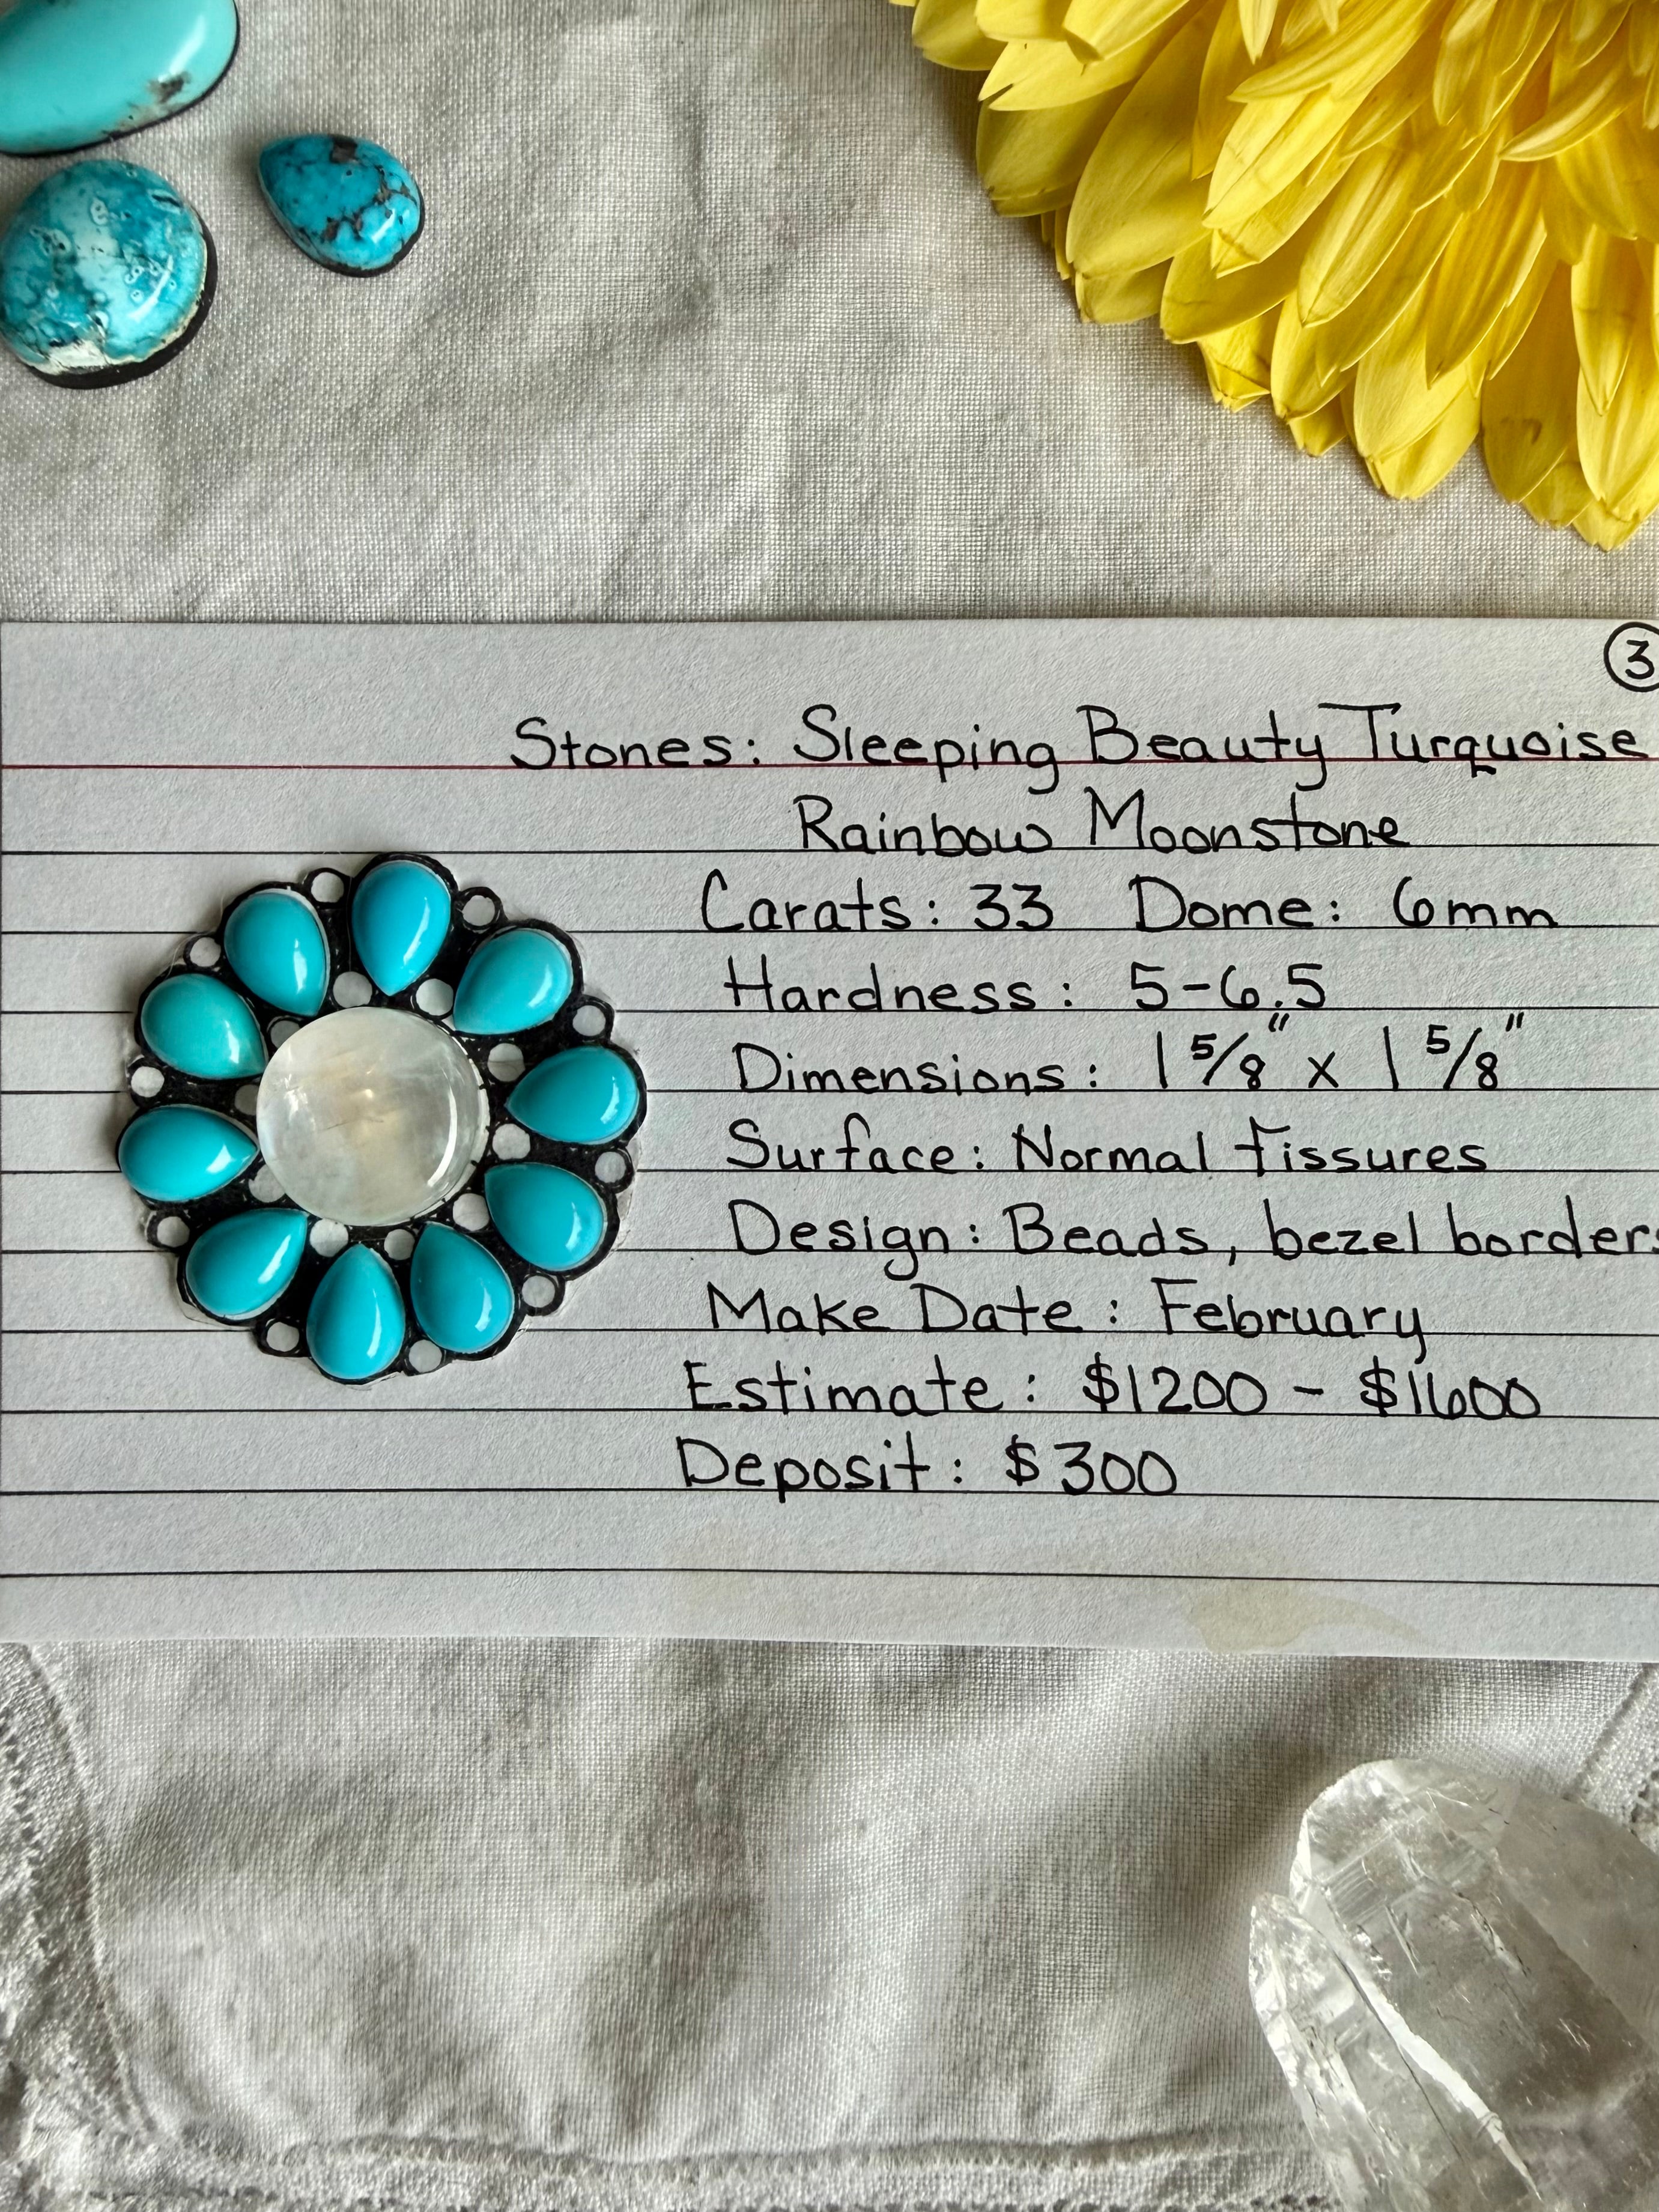 3
Stones: Sleeping Beauty Turquoise
Rainbow Moonstone
Carats: 33 Dome: 6mm
Hardness: 5-6.5
Dimensions: 1 5/8" x 1 5/8"
Surface: Normal fissures
Design: Beads, bezel borders
Make Date: February
Estimate: $1200 - $1600
Deposit: $300